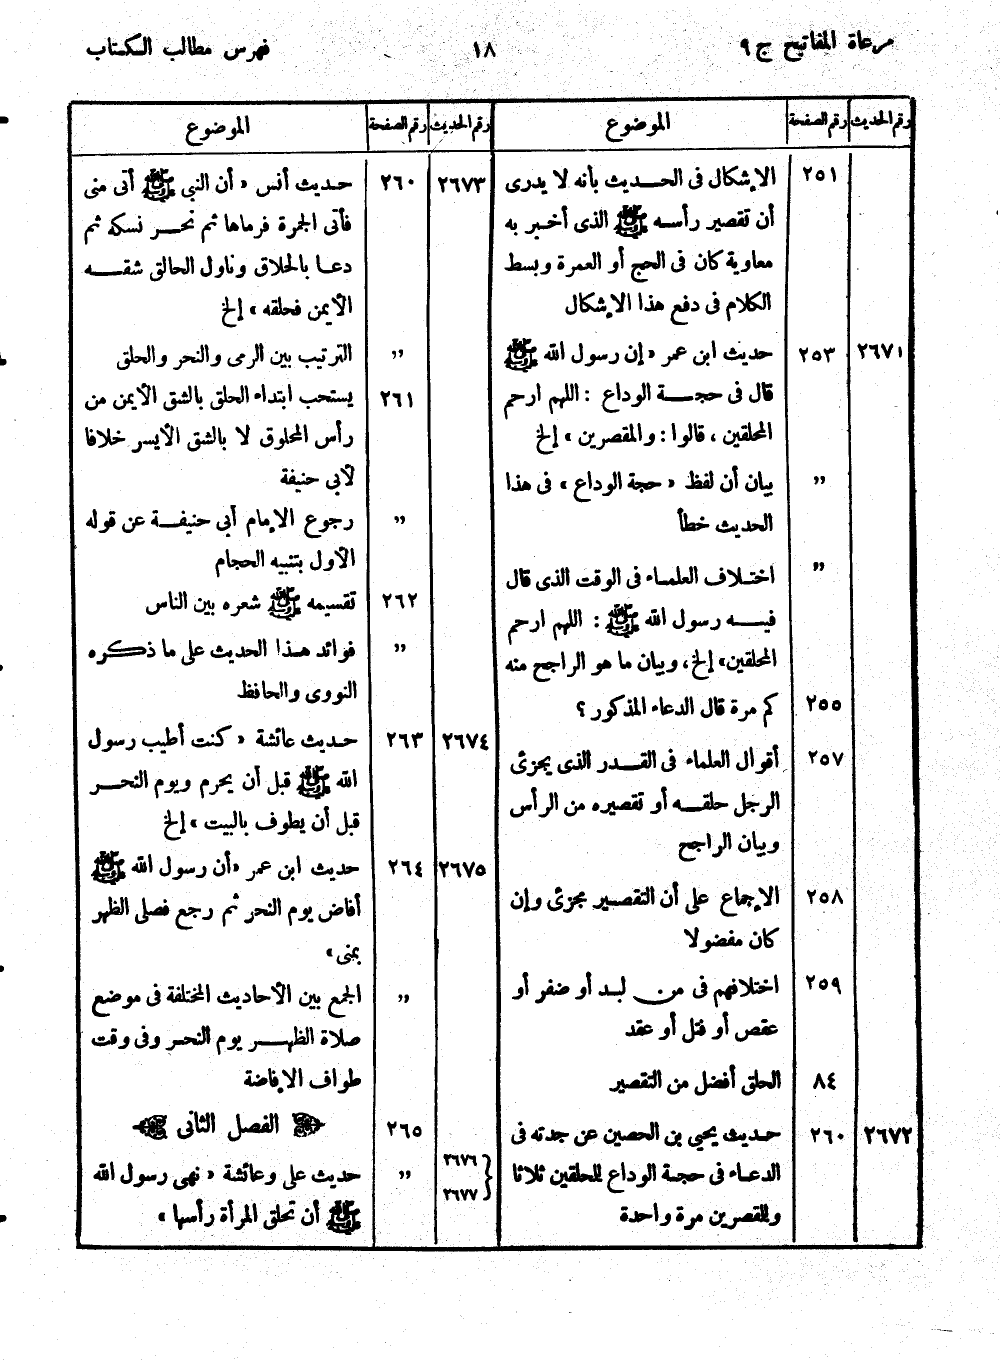 مرعاة المفاتيح ج ٩
١٨
فهرس مطالب الكتاب
رقم الحديث رقم الصفحة الموضوع
٢٥١ الإشكال فى الحديث بأنه لا يدرى
أن تقصير رأسه ﷺ الذى أخبر به
معاوية كان فى الحج أو العمرة وبسط
الكلام فى دفع هذا الإشكال
٢٦٧١ ٢٥٣ حديث ابن عمر «إن رسول الله ﷺ
قال فى حجة الوداع : اللهم ارحم
المحلقين ، قالوا : والمقصرين » إلخ
,, بيان أن لفظ « حجة الوداع » فى هذا
الحديث خطأ
,, اختلاف العلماء فى الوقت الذى قال
فيه رسول الله ﷺ : اللهم ارحم
المحلقين» إلخ، وبيان ما هو الراجح منه
٢٥٥ كم مرة قال الدعاء المذكور ؟
٢٥٧ أقوال العلماء فى القدر الذى يجزئ
الرجل حلقه أو تقصيره من الرأس
وبيان الراجح
٢٥٨ الإجماع على أن التقصير مجزئ وإن
كان مفضولا
٢٥٩ اختلافهم فى من لبد أو ضفر أو
عقص أو فتل أو عقد
٨٤ الحلق أفضل من التقصير
٢٦٧٢ ٢٦٠ حديث يحيي بن الحصين عن جدته فى
الدعاء فى حجة الوداع للمحلقين ثلاثا
وللمقصرين مرة واحدة
رقم الحديث رقم الصفحة الموضوع
٢٦٧٣ ٢٦٠ حديث أنس « أن النبى ﷺ أتى منى
فأتى الجمرة فرماها ثم نحر نسكه ثم
دعا بالحلاق وناول الحالق شقه
الأيمن فحلقه » إلخ
,, الترتيب بين الرمى والنحر والحلق
٢٦١ يستحب ابتداء الحلق بالشق الأيمن من
رأس المحلوق لا بالشق الأيسر خلافا
لأبي حنيفة
,, رجوع الإمام أبي حنيفة عن قوله
الأول بتنبيه الحجام
٢٦٢ تقسيمه ﷺ شعره بين الناس
,, فوائد هذا الحديث على ما ذكره
النووى والحافظ
٢٦٧٤ ٢٦٣ حديث عائشة « كنت أطيب رسول
الله ﷺ قبل أن يحرم ويوم النحر
قبل أن يطوف بالبيت » إلخ
٢٦٧٥ ٢٦٤ حديث ابن عمر «أن رسول الله ﷺ
أفاض يوم النحر ثم رجع فصلى الظهر
بمنى»
,, الجمع بين الأحاديث المختلفة فى موضع
صلاة الظهر يوم النحر وفى وقت
طواف الإفاضة
٢٦٥ الفصل الثانى
٢٦٧٦ ٢٦٧٧ } ,, حديث على وعائشة « نهى رسول الله
ﷺ أن تحلق المرأة رأسها »